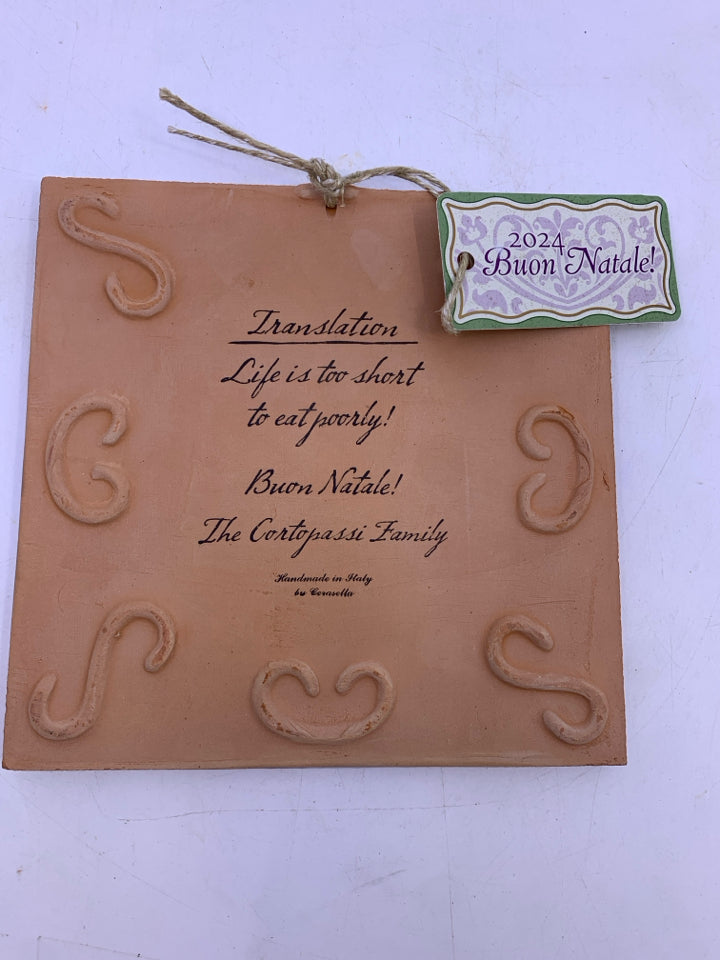 Translation
Life is too short
to eat poorly!
Buon Natale!
The Cortopassi Family
Handmade in Italy
by Cerasella
2024
Buon Natale!